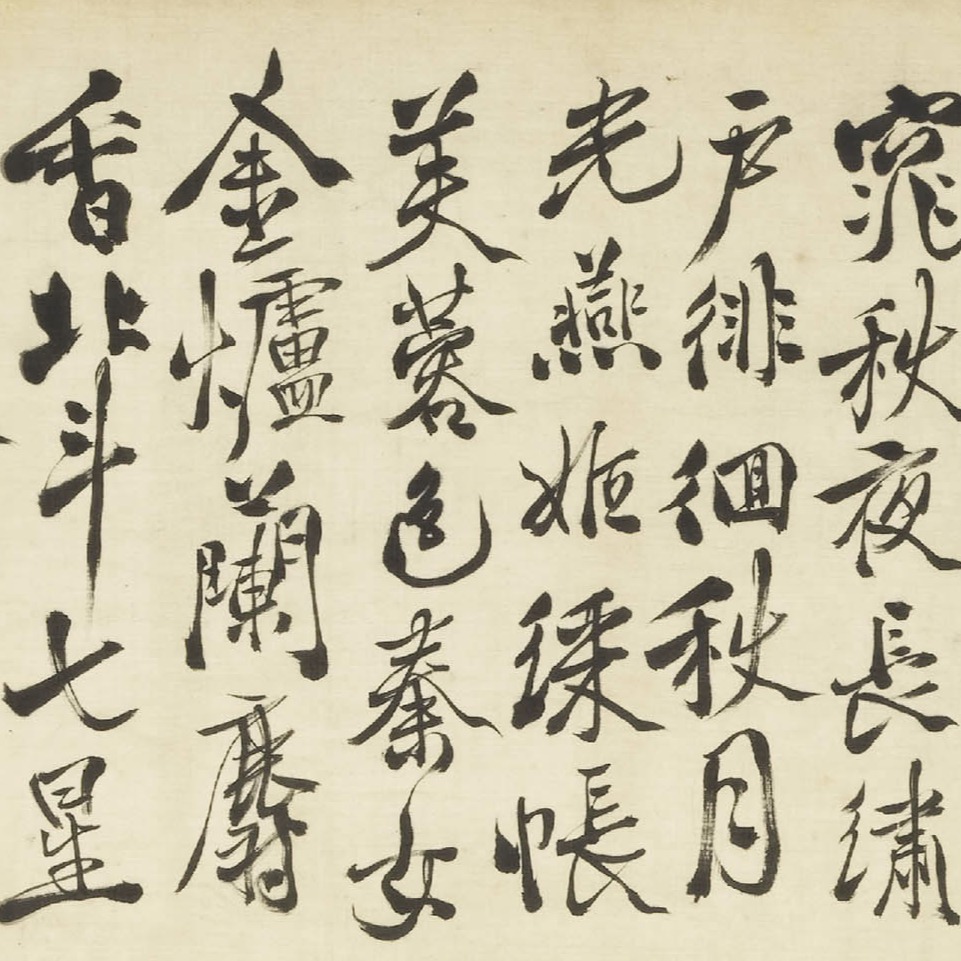 窕秋夜長繡
戶徘徊秋月
光燕姬綵帳
芙蓉色秦女
金爐蘭麝
香北斗七星